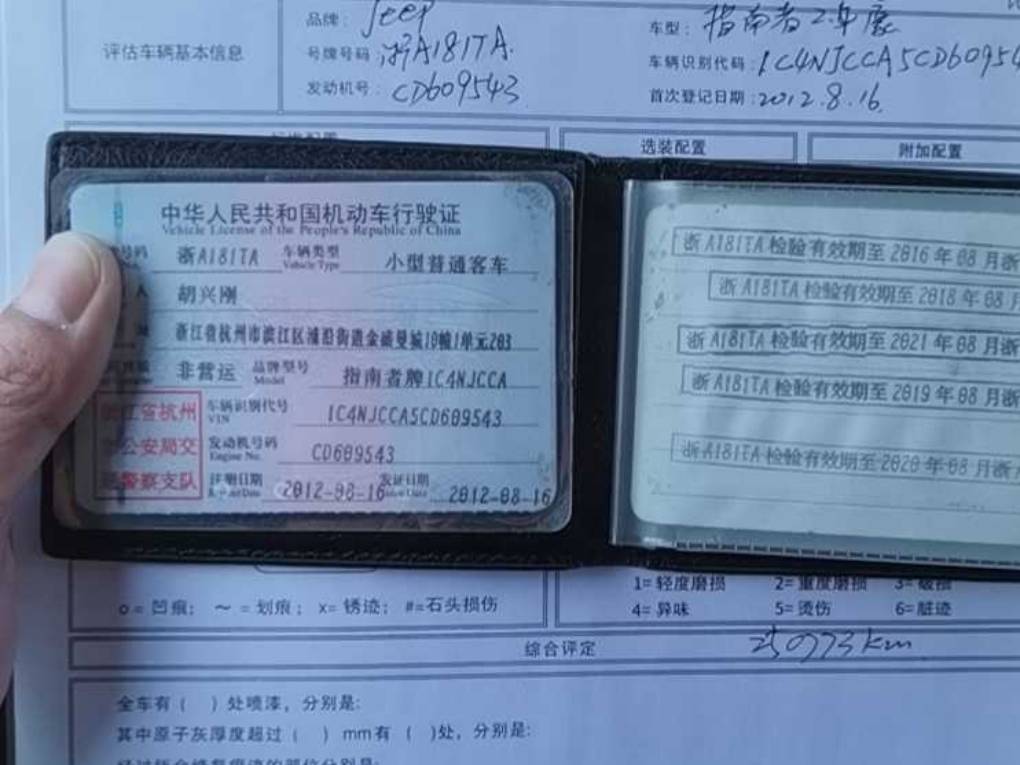 品牌: Jeep
车型: 指南者2.4
评估车辆基本信息
号牌号码: 浙A181TA.
车辆识别代码: 1C4NJCCA5CD60954
发动机号: CD609543
首次登记日期: 2012.8.16.
选装配置
附加配置
中华人民共和国机动车行驶证
Vehicle License of the People's Republic of China
号码 浙A181TA 车辆类型 小型普通客车
Vehicle Type
人 胡兴刚
浙江省杭州市滨江区浦沿街道金盛曼城10幢1单元203
非营运 品牌型号 指南者牌1C4NJCCA
Model
江省杭州 车辆识别代号 1C4NJCCA5CD609543
VIN
公安局交 发动机号码 CD609543
Engine No.
警察支队 注册日期 2012-08-16 发证日期 2012-08-16
浙A181TA检验有效期至2016年08月浙
浙A181TA检验有效期至2018年08月
浙A181TA检验有效期至2021年08月浙
浙A181TA检验有效期至2019年08月浙
浙A181TA检验有效期至2020年08月浙A
o = 凹痕; ～ = 划痕; x= 锈迹; #=石头损伤
1= 轻度磨损 2= 重度磨损 3= 破损
4= 异味 5= 烫伤 6= 脏迹
综合评定 250773km
全车有 ( ) 处喷漆, 分别是:
其中原子灰厚度超过 ( ) mm有 ( )处, 分别是: